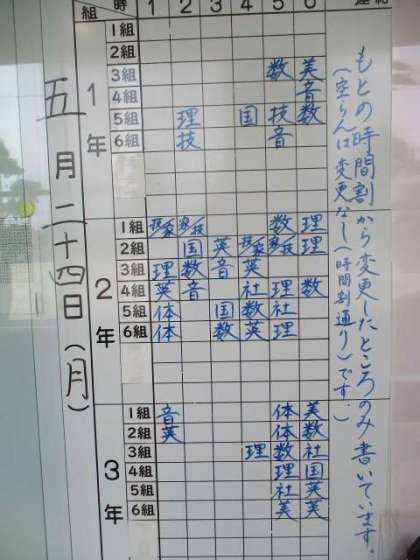 組 時 1 2 3 4 5 6
五月二十四日(月)
1年
1組
2組
3組 数 美
4組 音
5組 理 国 技 数
6組 技 音
2年
1組 数 理
2組 国 英 理
3組 理 数 音 英
4組 英 音 社 理 数
5組 体 国 数 社
6組 体 数 英 理
3年
1組 音 体 美
2組 英 体 数
3組 理 数 社
4組 理 国
5組 社 英
6組 美 英
もとの時間割から変更したところのみ書いています
(空らんは変更なし(時間割通り)です.)